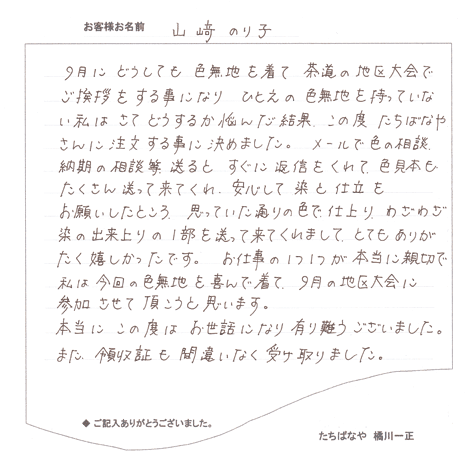 お客様お名前 山﨑 のり子
9月に どうしても 色無地を着て 茶道の地区大会で
ご挨拶を する事になり ひとえの 色無地を持っていな
い私は さて どうするか悩んだ結果、この度 たちばなや
さんに注文する事に 決めました。 メールで色の相談、
納期の相談等 送ると すぐに 返信をくれて、色見本も
たくさん 送って来てくれ、安心して 染と 仕立を
お願いしたところ、思っていた通りの色で、仕上り、わざわざ
染の出来上りの1部を送って来てくれまして、とても ありが
たく嬉しかったです。 お仕事の1つ1つが 本当に親切で
私は今回の色無地を喜んで着て、9月の地区大会に
参加 させて 頂こうと 思います。
本当に この度は お世話になり 有り難う ございました。
また、領収証も 間違いなく 受け取りました。
◆ ご記入ありがとうございました。
たちばなや 橘川一正